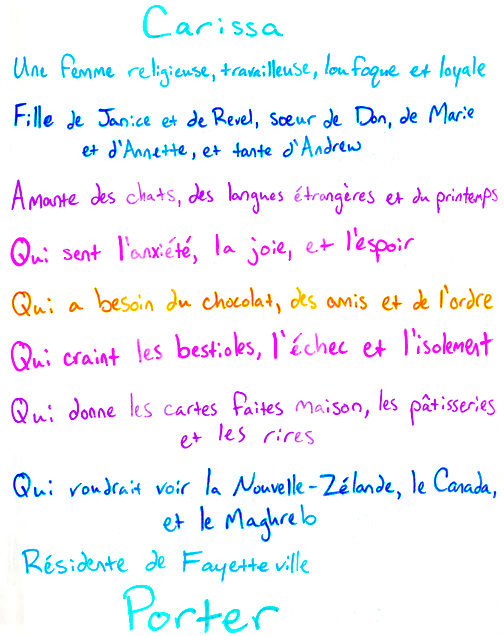 Carissa
Une femme religieuse, travailleuse, loufoque et loyale
Fille de Janice et de Revel, soeur de Don, de Marie
et d'Annette, et tante d'Andrew
Amante des chats, des langues étrangères et du printemps
Qui sent l'anxiété, la joie, et l'espoir
Qui a besoin du chocolat, des amis et de l'ordre
Qui craint les bestioles, l'échec et l'isolement
Qui donne les cartes faites maison, les pâtisseries
et les rires
Qui voudrait voir la Nouvelle-Zélande, le Canada,
et le Maghreb
Résidente de Fayetteville
Porter